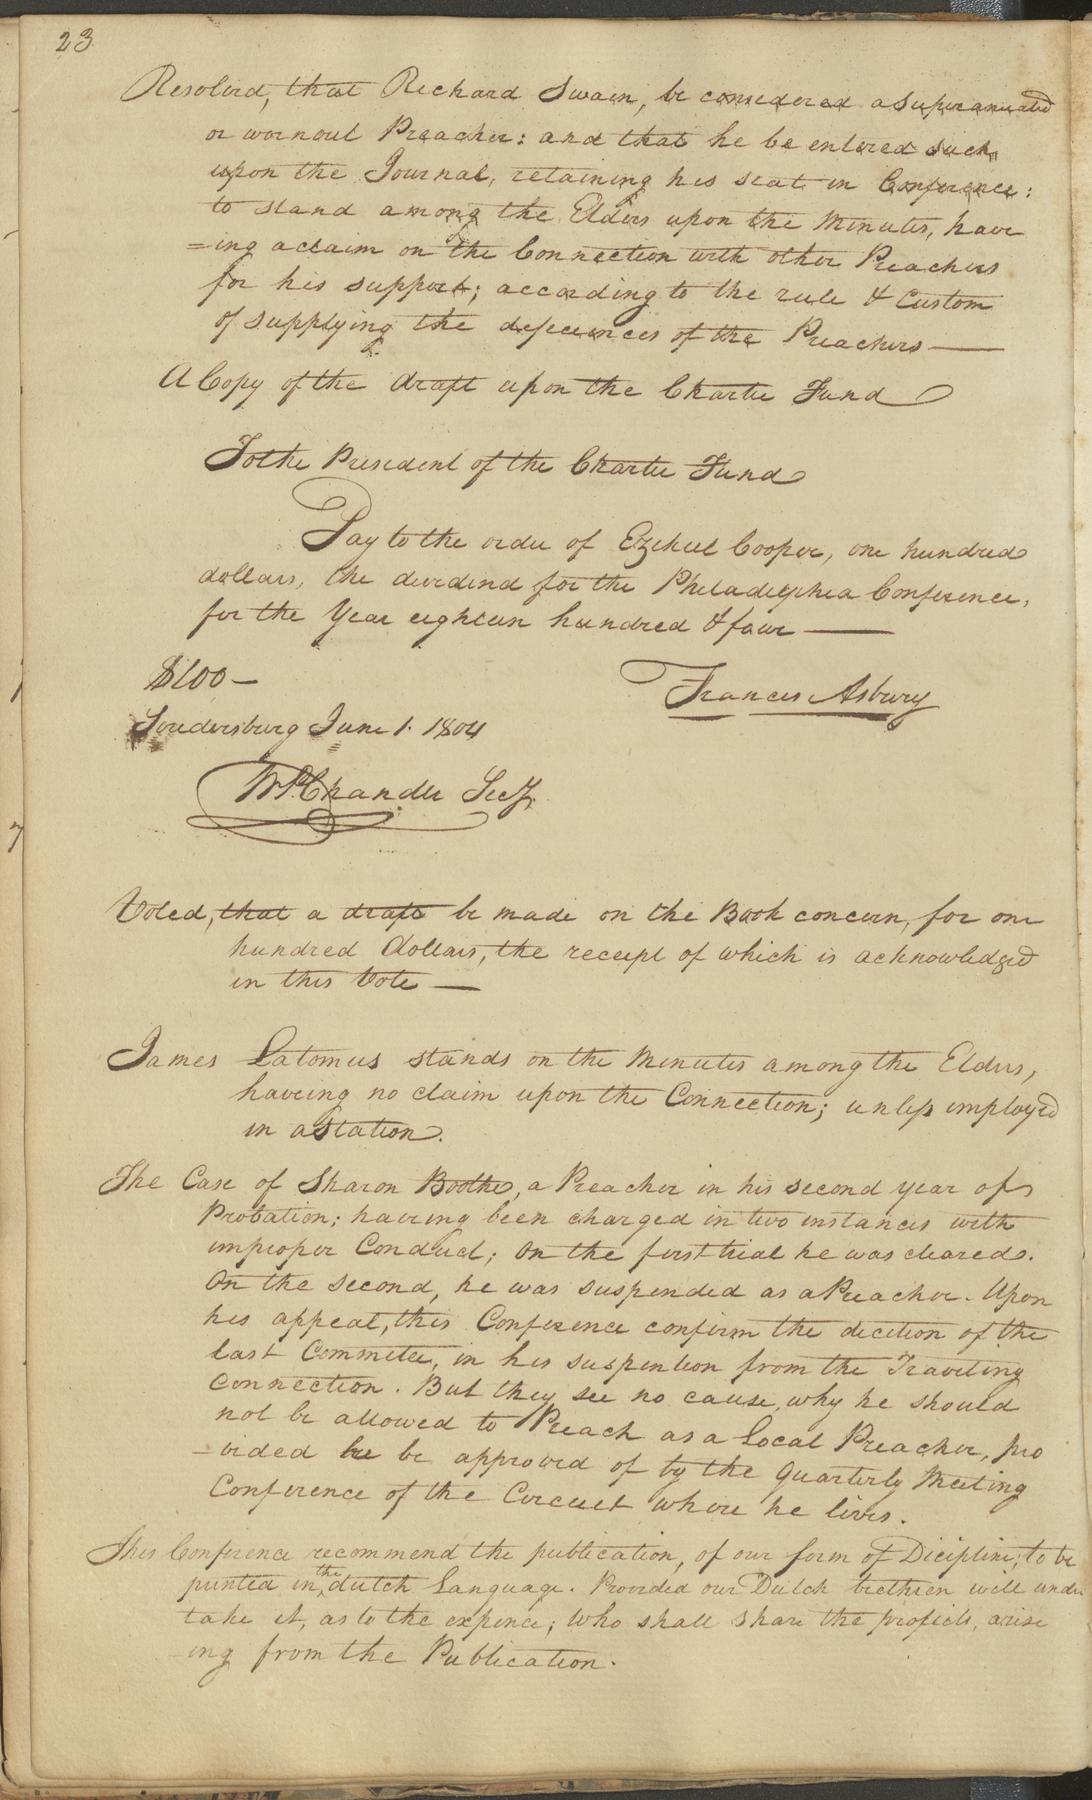 23
Resolved, that Richard Swain, be considered a Superanuated
or wornout Preacher: and that he be entered such
upon the Journal, retaining his seat in Conference:
to stand among the Elders upon the Minutes, have
=ing a claim on the Connection with other Preachers
for his support; according to the rule & Custom
of supplying the defeciences of the Preachers —
A Copy of the draft upon the Charter Fund
To the President of the Charter Fund
Pay to the order of Ezekiel Cooper, one hundred
dollars, the devidend for the Philadelphia Conference,
for the Year eighteen hundred & four —
$100 —
Francis Asbury
Soudersburg June 1. 1804
Wm P. Chandler Secy.
Voted, that a draft be made on the Book concern, for one
hundred Dollars, the receipt of which is acknowledged
in this Vote —
James Latomus stands on the Minutes among the Elders,
haveing no claim upon the Connection; unless employed
in a Station.
The Case of Sharon Boothe, a Preacher in his second year of
Probation; having been charged in two instances with
improper Conduct; On the first trial he was cleared.
On the second, he was suspended as a Preacher. Upon
his appeal, this Conference confirm the decition of the
last Commitee, in his suspention from the Traveling
Connection. But they see no cause, why he should
not be allowed to Preach as a Local Preacher, pro
-vided he be approved of by the Quarterly Meeting
Conference of the Circuit where he lives.
This Conference recommend the publication, of our form of Dicipline; to be
printed in the dutch Language. Provided our Dutch brethren will under
take it, as to the expence; who shall share the profits, arise
-ing from the Publication.